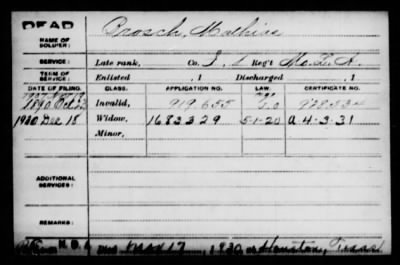 DEAD
NAME OF SOLDIER: Brosch, Mathias
SERVICE: Late rank, Co. I, 1 Reg't Mo. L. A.
TERM OF SERVICE: Enlisted , 1 Discharged , 1
DATE OF FILING. CLASS. APPLICATION NO. LAW. CERTIFICATE NO.
1890 Oct Invalid, 919.655
1920 Dec 18 Widow, 1683329 5-1-20 A-4-3-31
Minor,
ADDITIONAL SERVICES:
REMARKS:
Died Houston, Texas